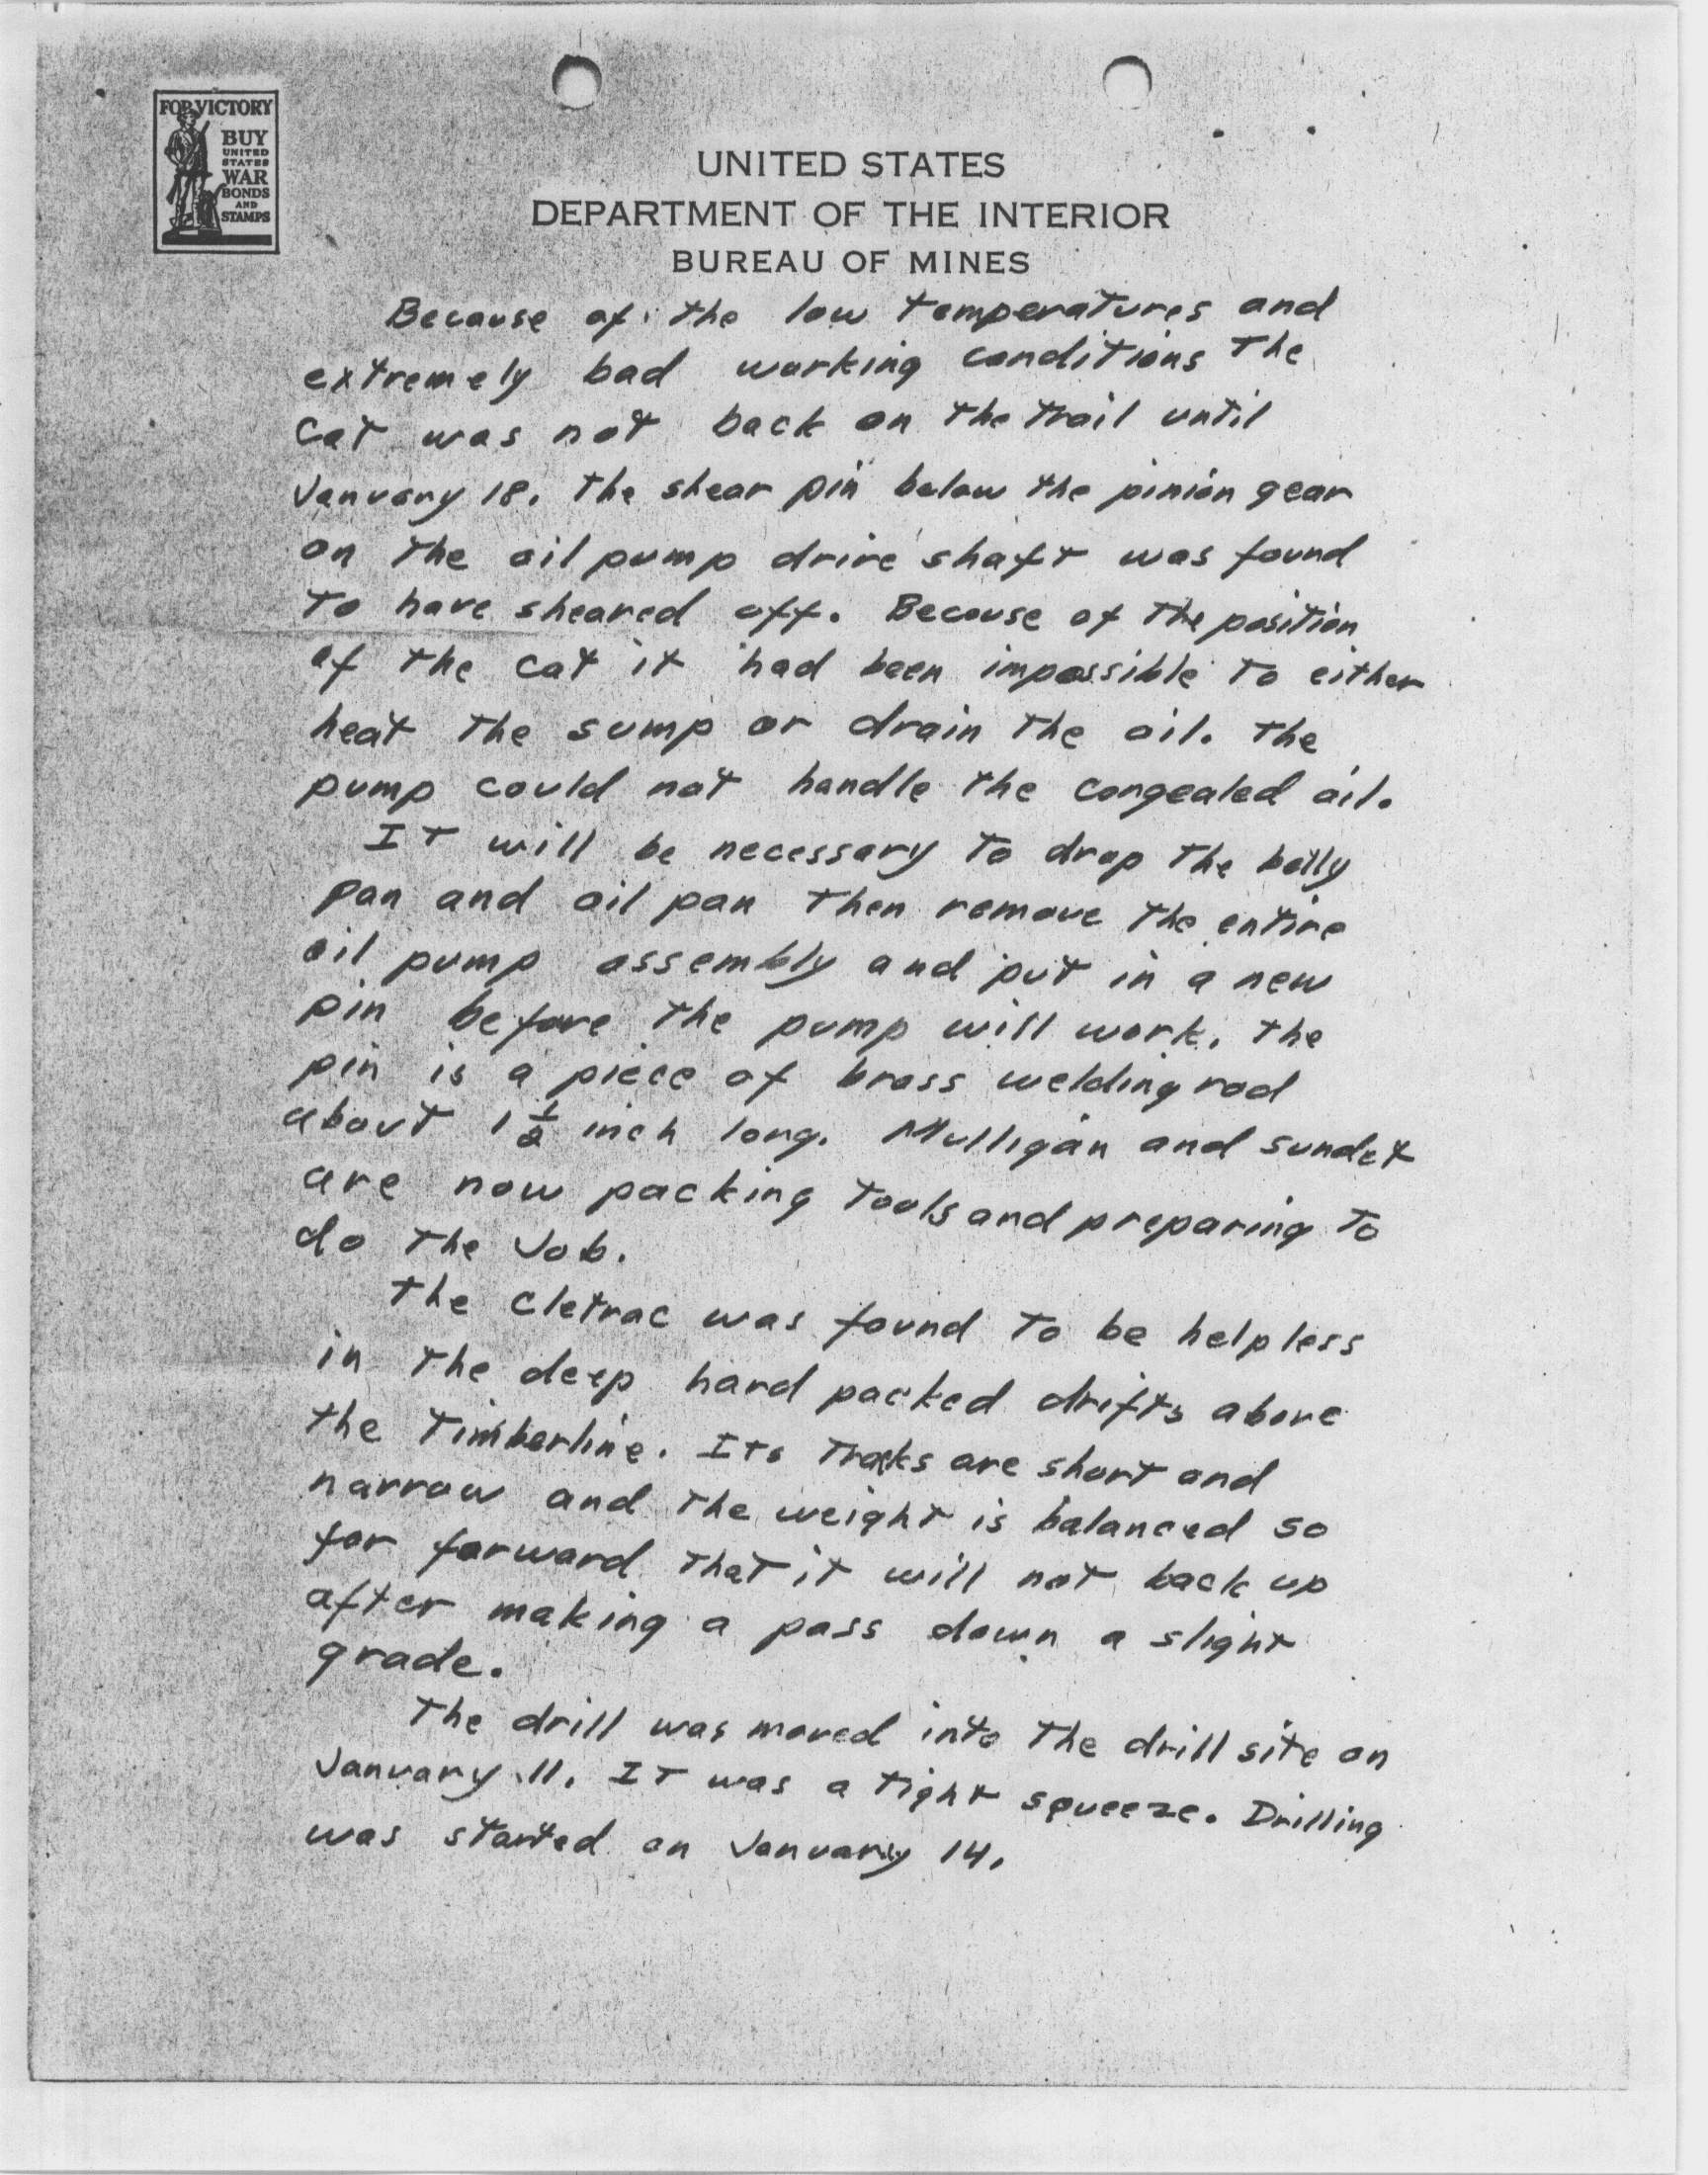 FOR VICTORY
BUY
UNITED
STATES
WAR
BONDS
AND
STAMPS
UNITED STATES
DEPARTMENT OF THE INTERIOR
BUREAU OF MINES
Because of the low temperatures and
extremely bad working conditions the
cat was not back on the trail until
January 18. The shear pin below the pinion gear
on the oil pump drive shaft was found
to have sheared off. Because of the position
of the cat it had been impossible to either
heat the sump or drain the oil. The
pump could not handle the congealed oil.
It will be necessary to drop the belly
pan and oil pan then remove the entire
oil pump assembly and put in a new
pin before the pump will work. The
pin is a piece of brass welding rod
about 1 1/2 inch long. Mulligan and Sundet
are now packing tools and preparing to
do the job.
The Cletrac was found to be helpless
in the deep hard packed drifts above
the timberline. Its tracks are short and
narrow and the weight is balanced so
far forward that it will not back up
after making a pass down a slight
grade.
The drill was moved into the drill site on
January 11. It was a tight squeeze. Drilling
was started on January 14.